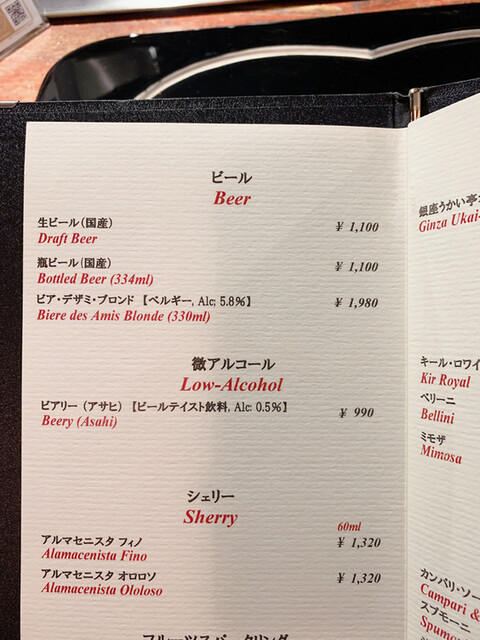 ビール
Beer
生ビール(国産) ¥ 1,100
Draft Beer
瓶ビール(国産) ¥ 1,100
Bottled Beer (334ml)
ビア・デザミ・ブロンド 【ベルギー, Alc; 5.8%】 ¥ 1,980
Biere des Amis Blonde (330ml)
微アルコール
Low-Alcohol
ビアリー (アサヒ) 【ビールテイスト飲料, Alc: 0.5%】 ¥ 990
Beery (Asahi)
シェリー
Sherry
60ml
アルマセニスタ フィノ ¥ 1,320
Alamacenista Fino
アルマセニスタ オロロソ ¥ 1,320
Alamacenista Ololoso
フルーツスパークリング
銀座うかい亭
Ginza Ukai-
キール・ロワイ
Kir Royal
ベリーニ
Bellini
ミモザ
Mimosa
カンパリ・ソー
Campari &
スプモーニ